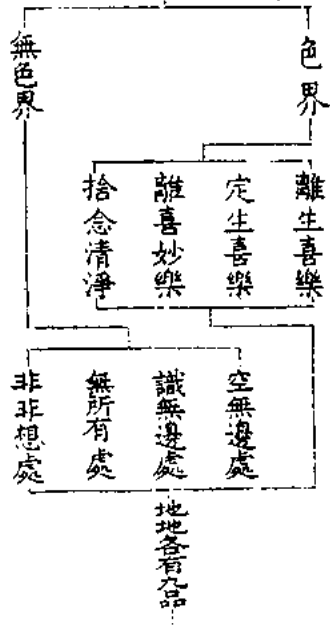 色界
無色界
離生喜樂
定生喜樂
離喜妙樂
捨念清淨
空無邊處
識無邊處
無所有處
非非想處
地地各有九品